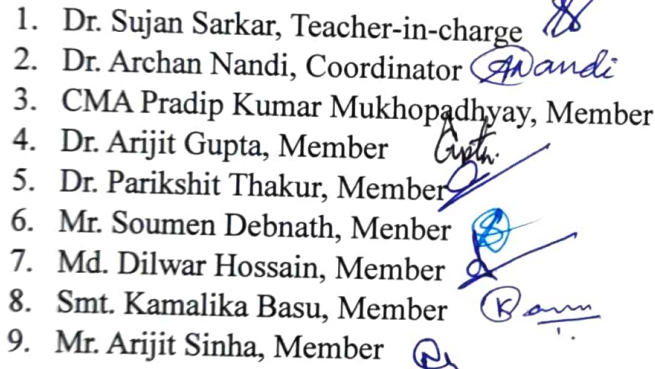 1. Dr. Sujan Sarkar, Teacher-in-charge
2. Dr. Archan Nandi, Coordinator ANandi
3. CMA Pradip Kumar Mukhopadhyay, Member
4. Dr. Arijit Gupta, Member Gupta.
5. Dr. Parikshit Thakur, Member
6. Mr. Soumen Debnath, Menber
7. Md. Dilwar Hossain, Member
8. Smt. Kamalika Basu, Member
9. Mr. Arijit Sinha, Member